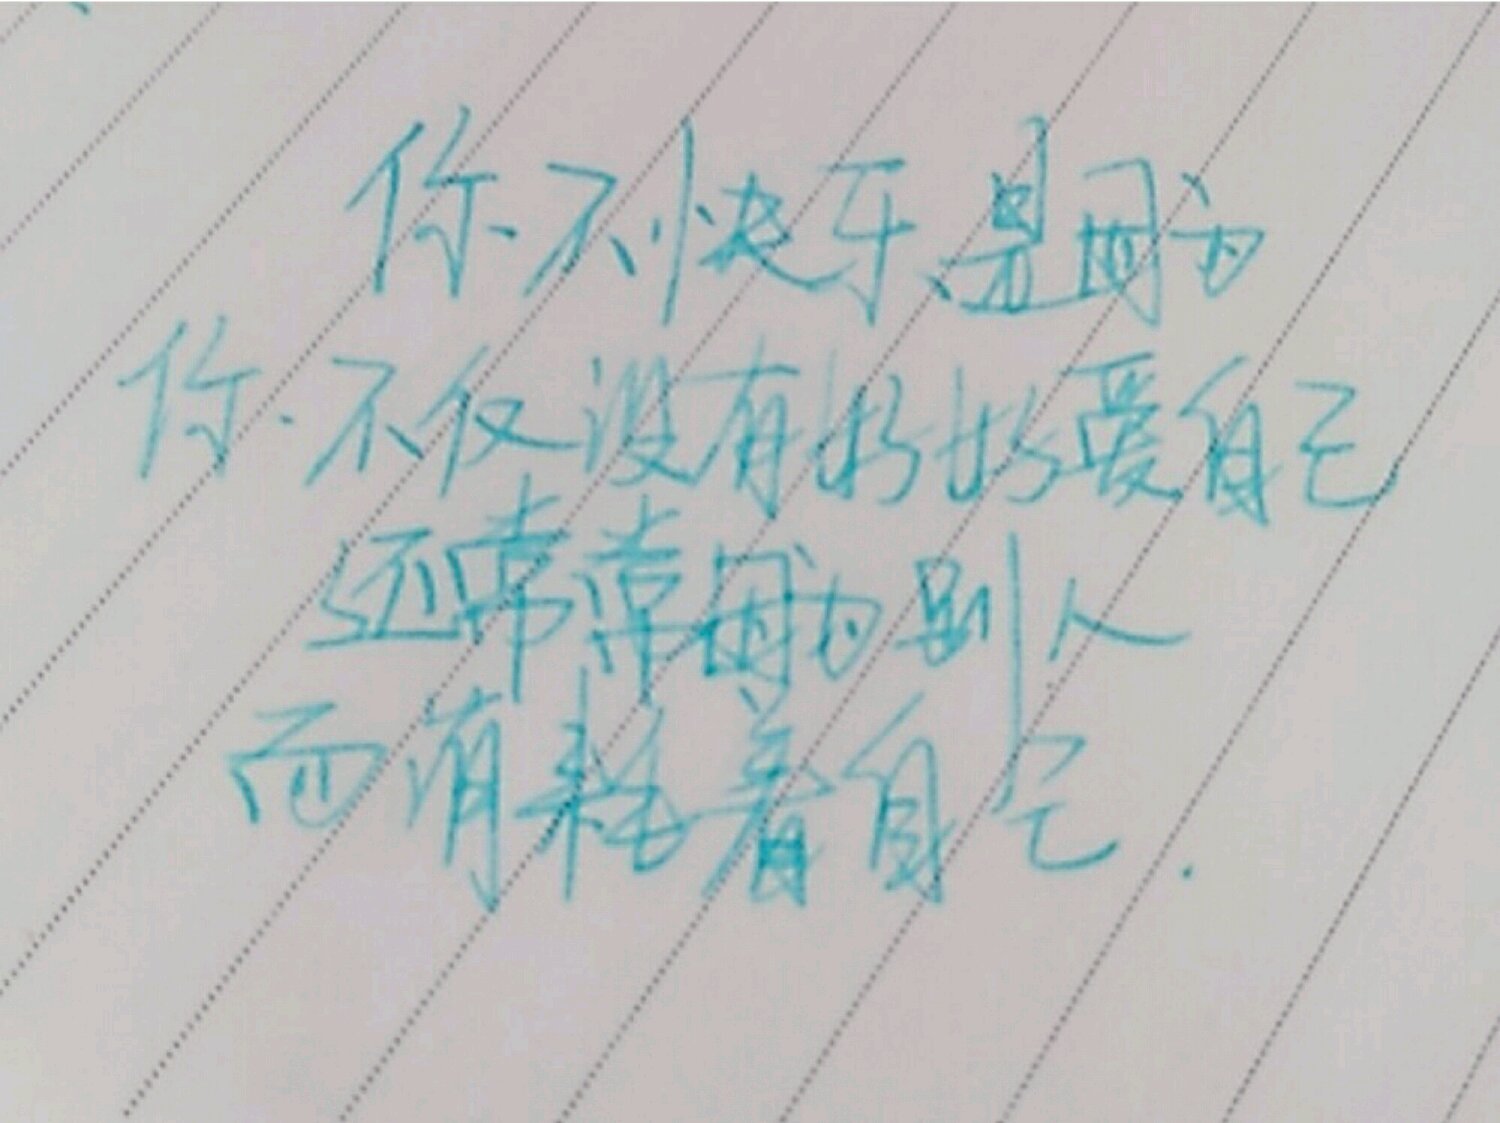 你不快乐是因为
你不仅没有好好爱自己
还常常因为别人
而消耗着自己.